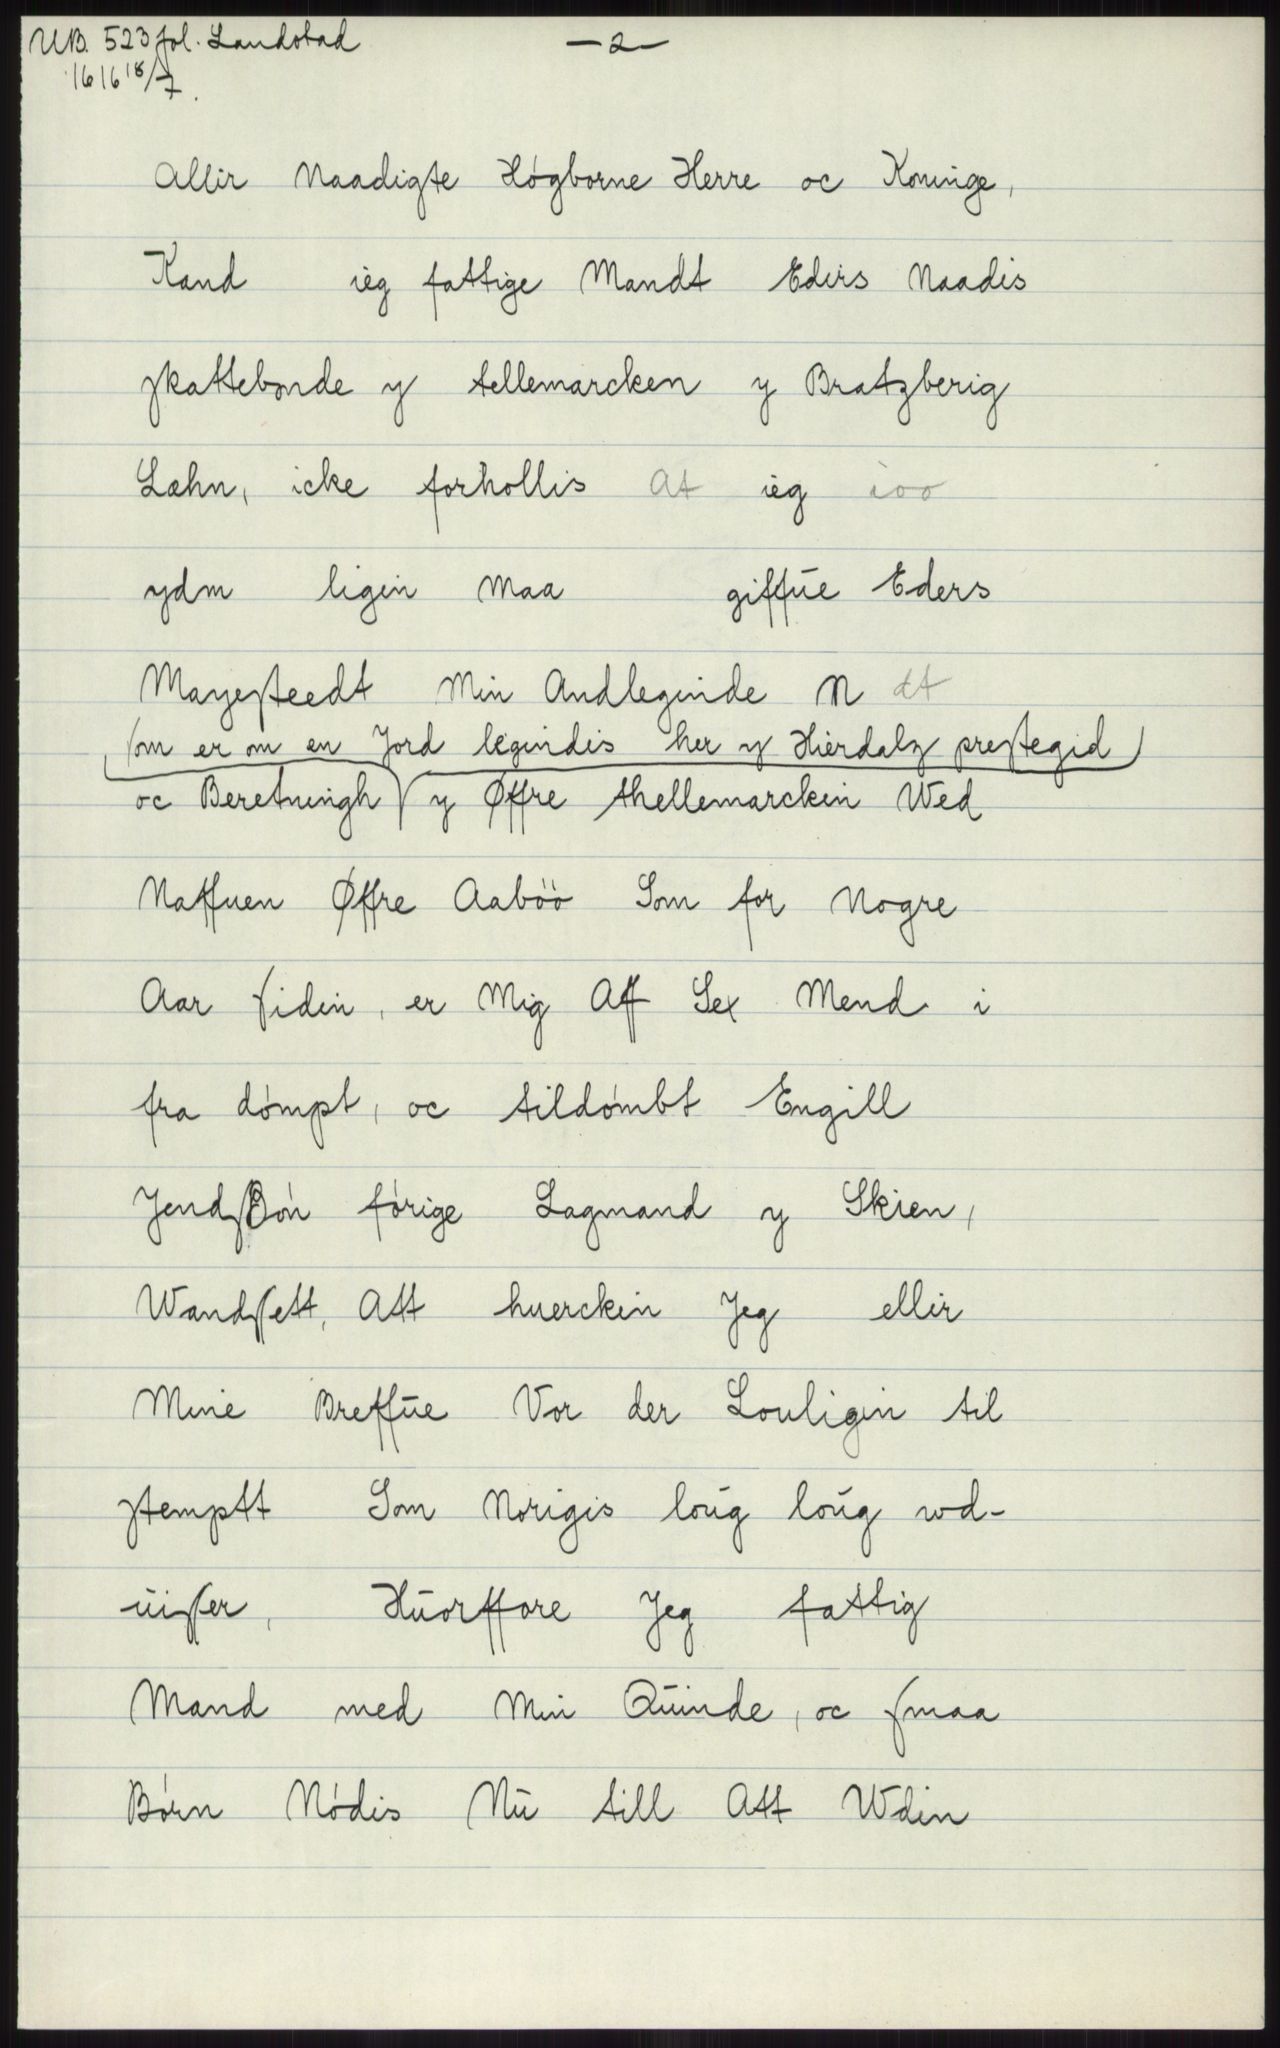 UB. 523 fol. Landstad
— 2 —
1616 18/7.
Allir Naadigte Høgborne Herre oc Koninge,
Kand ieg fattige Mandt Edirs Naadis
skattebonde y tellemarcken y Bratzberig
Læhn, icke forhollis At ieg ioo
ydm ligin Maa giffūe Eders
Mayesteedt Min Andleginde N dt
som er om en Jord legindis her y Hierdalz prestegid
oc Beretningh y Øffre thellemarckin Wed
Naffuen Øffre Aaböö Som for Nogre
Aar siden, er Mig Aff Sex Mend i
fra dømpt, oc tildømbt Engill
JendsSøn førige Lagmand y Skien,
Wandsett, Att huerckin Jeg ellir
Mine Breffūe Vor der Louligin til
stemptt Som Norigis loūg loūg wd-
ūisser, Hūorffore Jeg fattig
Mand med Min Qūinde, oc smaa
Børn Nødis Nū till Att Wdin